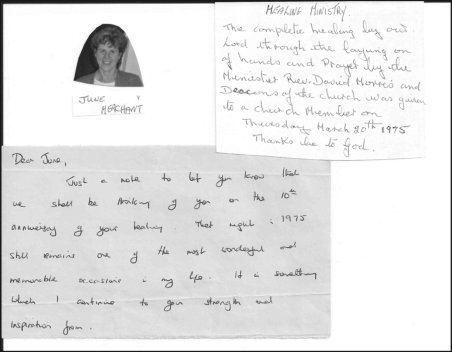 JUNE
MERCHANT
HEALING MINISTRY.
The complete healing by our
Lord through the laying on
of hands and Prayer by the
Minister Rev. David Morris and
Deacons of the church was given
to a church Member on
Thursday March 20th 1975
Thanks be to God.
Dear June,
Just a note to let you know that
we shall be thinking of you on the 10th
anniversary of your healing. That night in 1975
still remains one of the most wonderful and
memorable occasions in my life. It is something
which I continue to gain strength and
inspiration from.